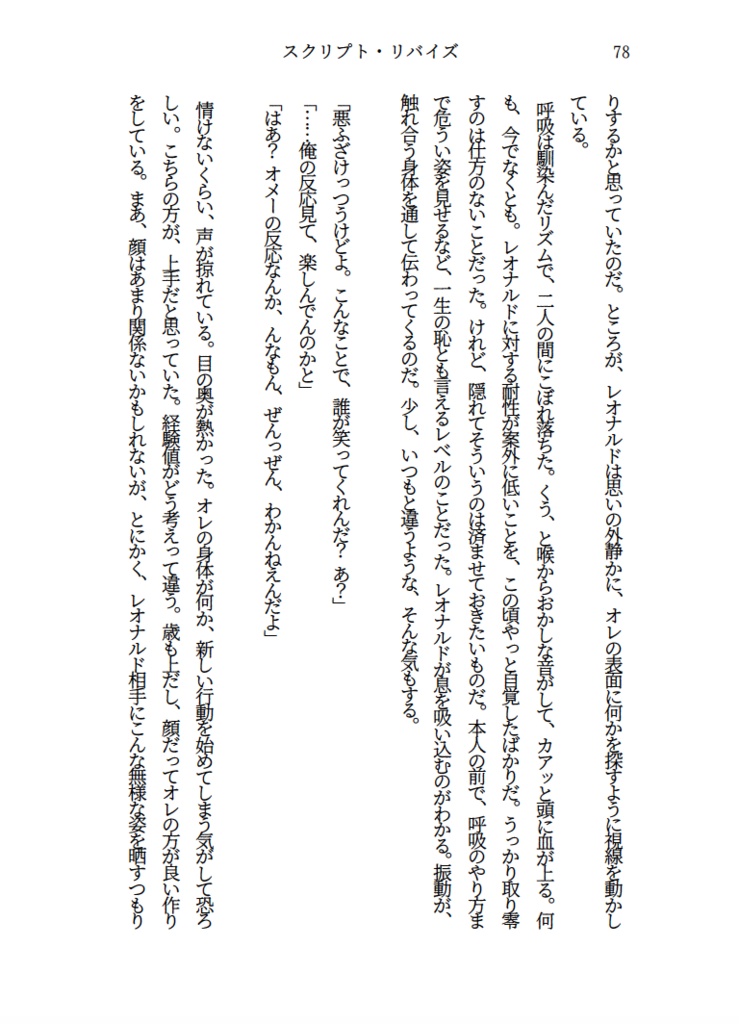 78
スクリプト・リバイズ
りするかと思っていたのだ。ところが、レオナルドは思いの外静かに、オレの表面に何かを探すように視線を動かし
ている。
呼吸は馴染んだリズムで、二人の間にこぼれ落ちた。くう、と喉からおかしな音がして、カアッと頭に血が上る。何
も、今でなくとも。レオナルドに対する耐性が案外に低いことを、この頃やっと自覚したばかりだ。うっかり取り零
すのは仕方のないことだった。けれど、隠れてそういうのは済ませておきたいものだ。本人の前で、呼吸のやり方ま
で危うい姿を見せるなど、一生の恥とも言えるレベルのことだった。レオナルドが息を吸い込むのがわかる。振動が、
触れ合う身体を通して伝わってくるのだ。少し、いつもと違うような、そんな気もする。
「悪ふざけっつうけどよ。こんなことで、誰が笑ってくれんだ？ あ？」
「……俺の反応見て、楽しんでんのかと」
「はあ？ オメーの反応なんか、んなもん、ぜんっぜん、わかんねえんだよ」
情けないくらい、声が掠れている。目の奥が熱かった。オレの身体が何か、新しい行動を始めてしまう気がして恐ろ
しい。こちらの方が、上手だと思っていた。経験値がどう考えって違う。歳も上だし、顔だってオレの方が良い作り
をしている。まあ、顔はあまり関係ないかもしれないが、とにかく、レオナルド相手にこんな無様な姿を晒すつもり